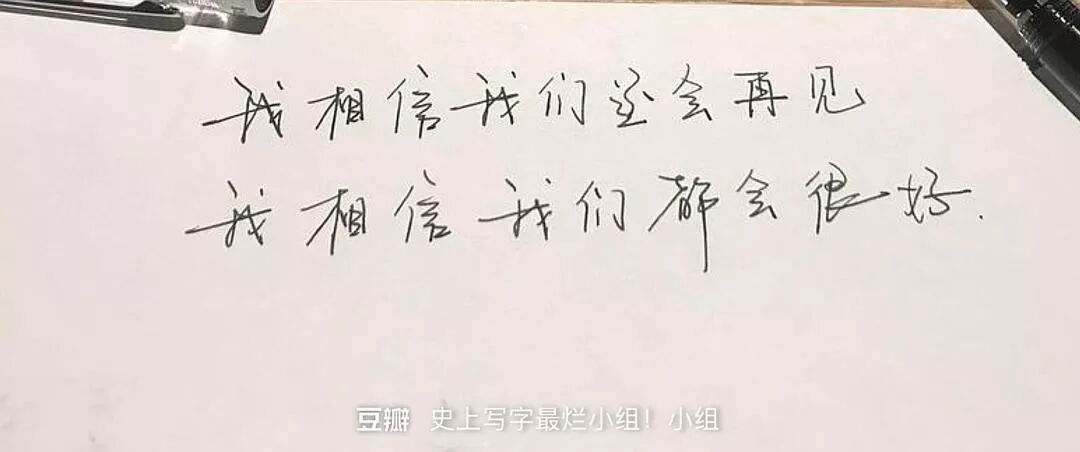 我相信我们还会再见
我相信我们都会很好.
豆瓣 史上写字最烂小组！小组